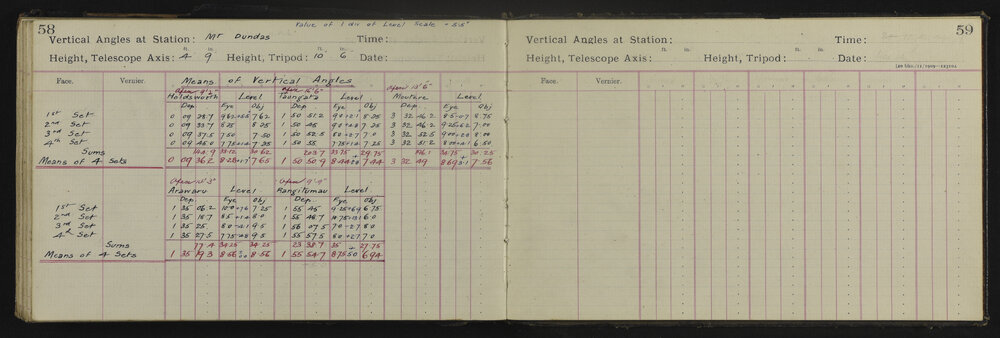 58
Value of 1 div of Level Scale = 5.5"
Vertical Angles at Station: Mt Dundas Time:
Height, Telescope Axis: 4 ft. 9 in. Height, Tripod: 10 ft. 6 in. Date:
Face. Vernier. Means of Vertical Angles
Holdsworth Level Taungata Level Moutere Level
Dep Eye Obj Dep Eye Obj Dep Eye Obj
1st Set 0 09 28.7 7.62 1 50 51.2 8.25 3 32 46.2 8.75
2nd Set 0 09 33.7 8.25 1 50 45 3 32 46.2 7.00
3rd Set 0 09 37.5 7.50 7.50 1 50 52.5 7.0 3 32 52.5 8.00
4th Set 0 09 45.0 7.25 1 50 55 7.25 3 32 51.2 6.50
Sums 144.9 33.12 30.62 203.7 33.75 29.75 196.1 34.75 30.25
Means of 4 Sets 0 09 36.2 8.28 7.65 1 50 50.9 8.44 7.44 3 32 49 8.69 7.56
Arawaru Level Rangitumau Level
Dep. Eye Obj Dep. Eye Obj
1st Set 1 35 06.2 7.25 1 55 45 6.75
2nd Set 1 35 18.7 8.5 8.0 1 55 48.7 6.0
3rd Set 1 35 25 8.0 9.5 1 56 07.5 7.0 8.0
4th Set 1 35 27.5 7.75 9.5 1 55 57.5 8.0 7.0
Sums 77.4 34.25 34.25 23 38.7 35 27.75
Means of 4 Sets 1 35 19.3 8.56 8.56 1 55 54.7 8.75 6.94
59
Vertical Angles at Station: Time:
Height, Telescope Axis: ft. in. Height, Tripod: ft. in. Date:
Face. Vernier.